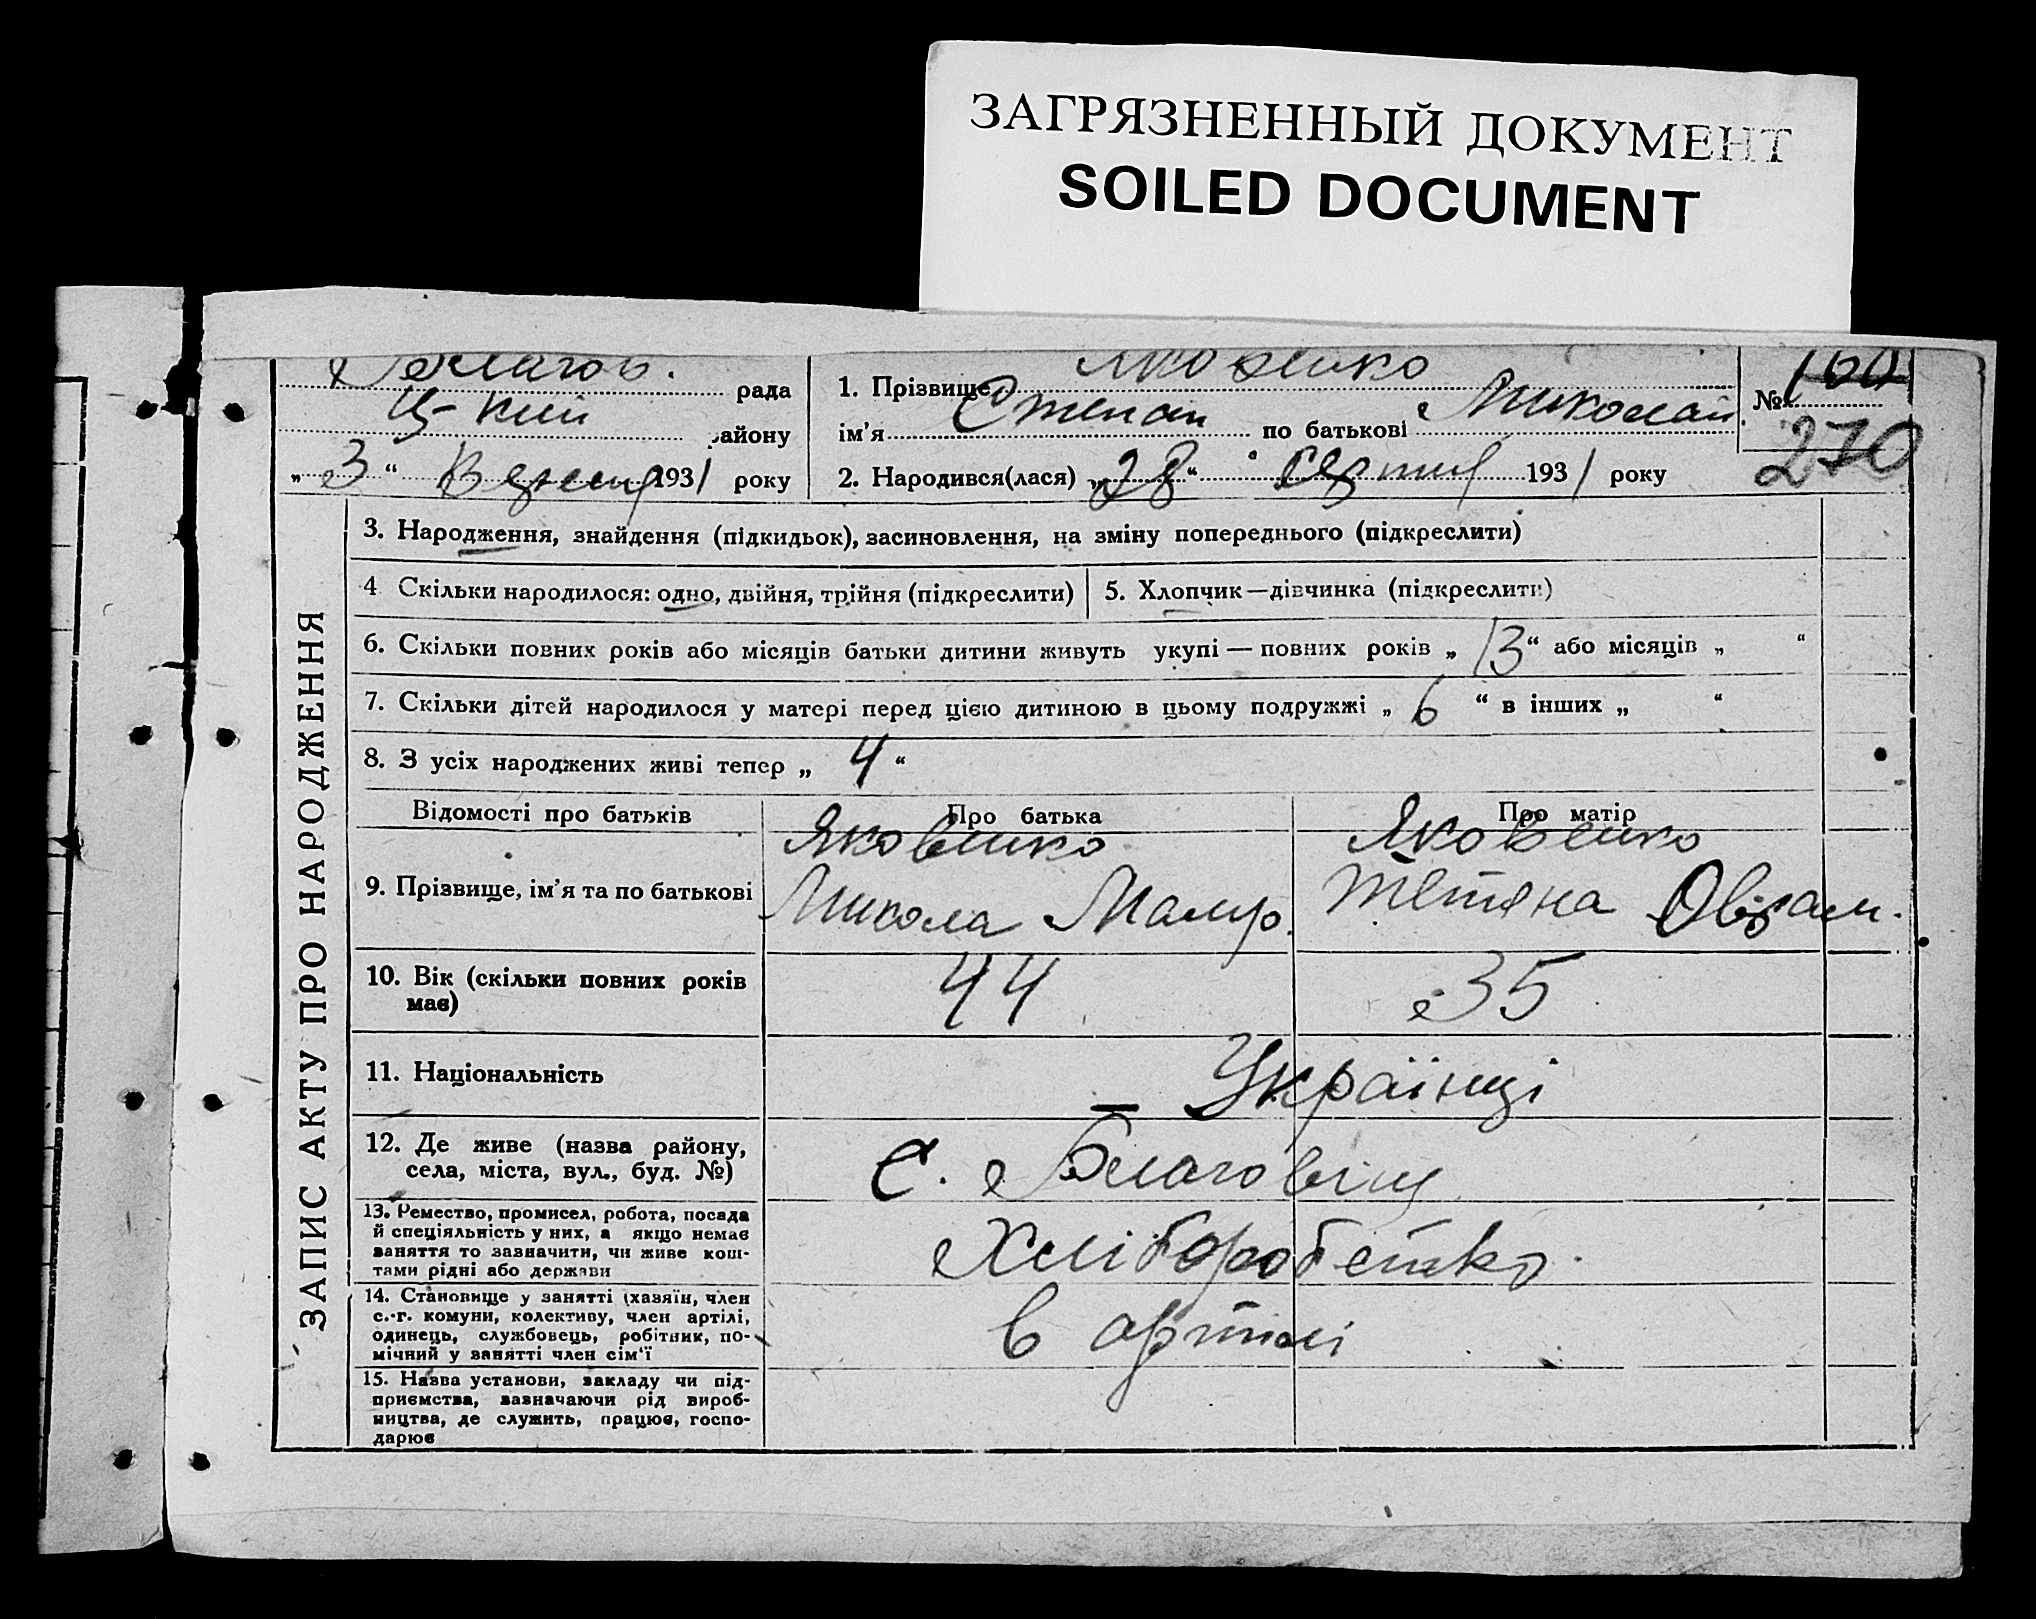 ЗАГРЯЗНЕННЫЙ ДОКУМЕНТ
SOILED DOCUMENT
Благов. рада
Ц-кий району
„ 3 “ Вересня 1931 року
1. Прізвище Яковенко
ім’я Степан по батькові Миколай.
2. Народився(лася) „ 28 “ серпня 1931 року
№ 160
270
ЗАПИС АКТУ ПРО НАРОДЖЕННЯ
3. Народження, знайдення (підкидьок), засиновлення, на зміну попереднього (підкреслити)
4 Скільки народилося: одно, двійня, трійня (підкреслити) 5. Хлопчик—дівчинка (підкреслити)
6. Скільки повних років або місяців батьки дитини живуть укупі — повних років „ 13 “ або місяців „ “
7. Скільки дітей народилося у матері перед цією дитиною в цьому подружжі „ 6 “ в інших „ “
8. З усіх народжених живі тепер „ 4 “
Відомості про батьків Про батька Про матір
9. Прізвище, ім’я та по батькові
Яковенко
Микола Мамр.
Яковенко
Тетяна Оврам.
10. Вік (скільки повних років
має)
44 35
11. Національність
– Українці
12. Де живе (назва району,
села, міста, вул., буд. №)
с. Благовіщ
13. Ремество, промисел, робота, посада
й спеціяльність у них, а якщо немає
заняття то зазначити, чи живе кош-
тами рідні або держави
14. Становище у занятті (хазяїн, член
с.-г. комуни, колективу, член артілі,
одинець, службовець, робітник, по-
мічний у занятті член сім‘ї
в артілі
15. Назва установи, закладу чи під-
приємства, зазначаючи рід вироб-
ництва, де служить, працює, госпо-
дарює